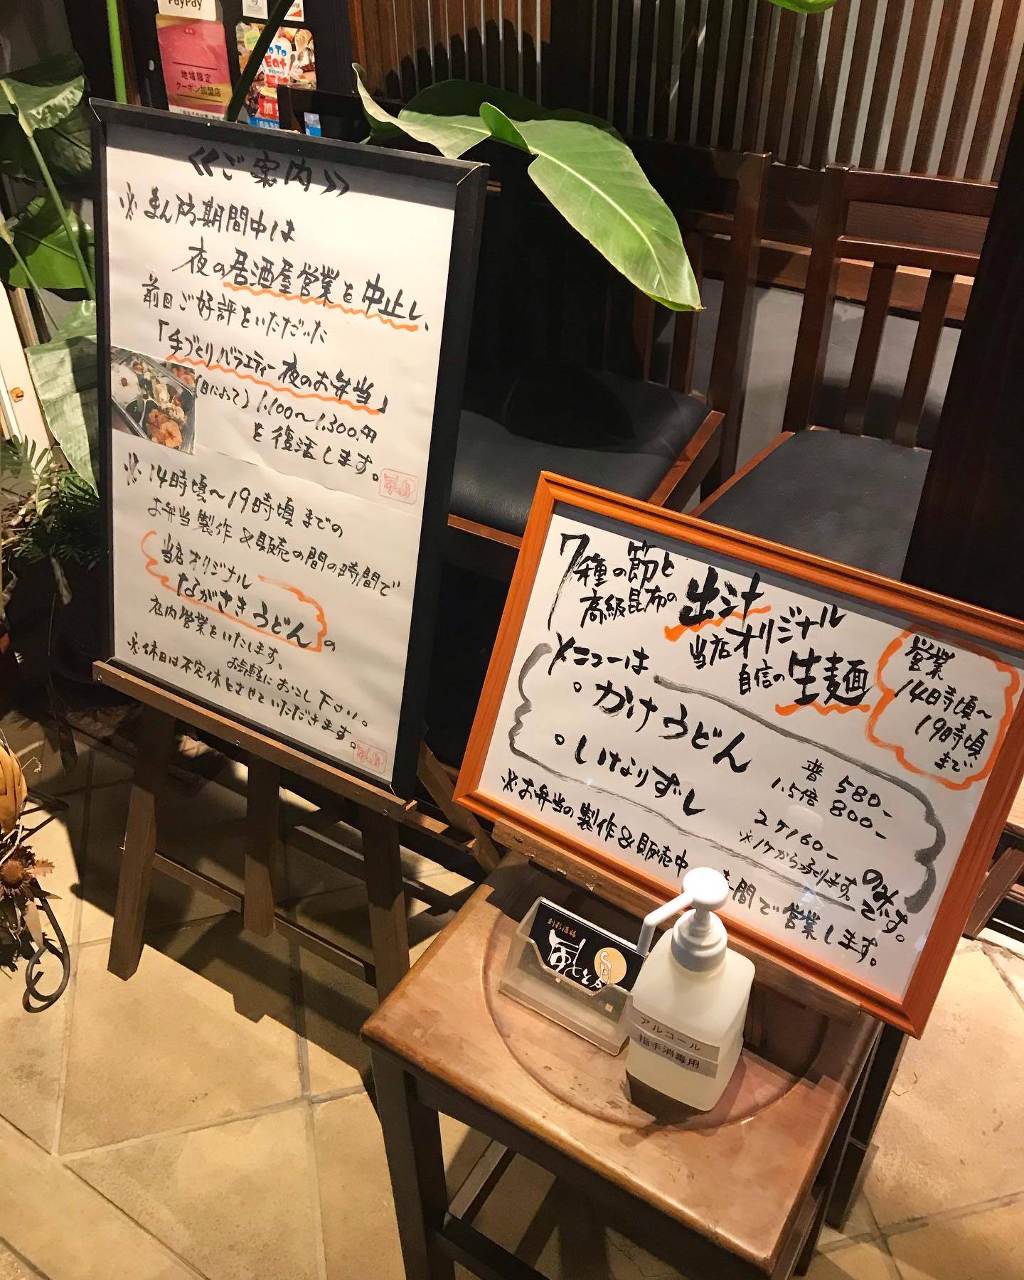 PayPay
地域限定
クーポン加盟店
Go To
Eat
≪ご案内≫
※まん防期間中は
夜の居酒屋営業を中止し、
前回ご好評をいただいた
「手づくりバラエティー夜のお弁当」
(日によって)1.100〜1.300.円
を復活します。
※14時頃〜19時頃までの
お弁当製作&販売の間の時間で
当店オリジナル
ながさきうどんの
店内営業をいたします、
お気軽にお越し下さい。
※休日は不定休とさせていただきます。
7種の節と
高級昆布の出汁
当店オリジナル
自信の生麺
営業
14時頃〜
19時頃
まで
メニューは
。かけうどん
普 580-
1.5倍 800-
。いなりずし
2ケ160-
※1ケから売ります。のみです。
※お弁当の製作&販売中 時間で営業します。
アルコール
指手消毒用